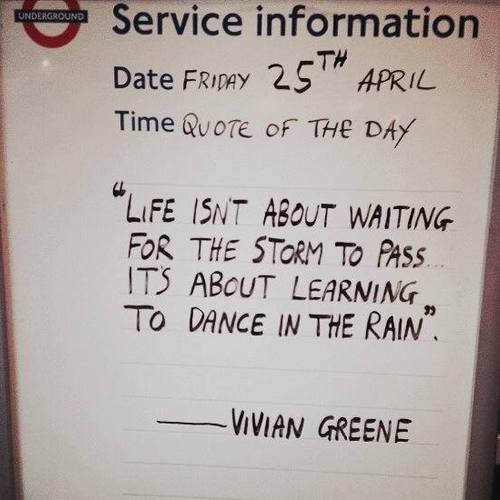 UNDERGROUND
Service information
Date FRIDAY 25TH APRIL
Time QUOTE OF THE DAY
"LIFE ISN'T ABOUT WAITING
FOR THE STORM TO PASS...
IT'S ABOUT LEARNING
TO DANCE IN THE RAIN".
— VIVIAN GREENE